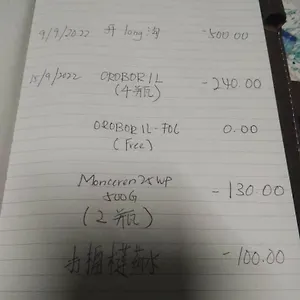 9/9/2022 升 long 沟 -500.00
15/9/2022 OROBOR 1L -240.00
(4瓶)
OROBOR 1L-FOC 0.00
(Free)
Monceren 25 WP -130.00
500G
(2瓶)
-100.00